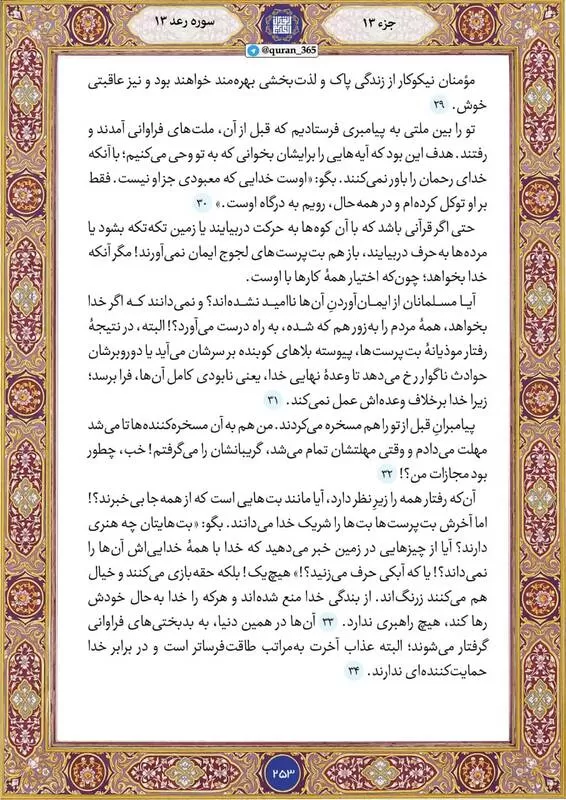 جزء ۱۳
سوره رعد ۱۳
@quran_365
مؤمنان نیکوکار از زندگی پاک و لذت‌بخشی بهره‌مند خواهند بود و نیز عاقبتی
خوش. ۲۹
تو را بین ملتی به پیامبری فرستادیم که قبل از آن، ملت‌های فراوانی آمدند و
رفتند. هدف این بود که آیه‌هایی را برایشان بخوانی که به تو وحی می‌کنیم؛ با آنکه
خدای رحمان را باور نمی‌کنند. بگو: «اوست خدایی که معبودی جز او نیست. فقط
بر او توکل کرده‌ام و در همه‌حال، رویم به درگاه اوست.» ۳۰
حتی اگر قرآنی باشد که با آن کوه‌ها به حرکت دربیایند یا زمین تکه‌تکه بشود یا
مرده‌ها به حرف دربیایند، باز هم بت‌پرست‌های لجوج ایمان نمی‌آورند! مگر آنکه
خدا بخواهد؛ چون‌که اختیار همهٔ کارها با اوست.
آیا مسلمانان از ایمان‌آوردنِ آن‌ها ناامید نشده‌اند؟ و نمی‌دانند که اگر خدا
بخواهد، همهٔ مردم را به‌زور هم که شده، به راه درست می‌آورد؟! البته، در نتیجهٔ
رفتار موذیانهٔ بت‌پرست‌ها، پیوسته بلاهای کوبنده بر سرشان می‌آید یا دوروبرشان
حوادث ناگوار رخ می‌دهد تا وعدهٔ نهایی خدا، یعنی نابودی کامل آن‌ها، فرا برسد؛
زیرا خدا برخلاف وعده‌اش عمل نمی‌کند. ۳۱
پیامبرانِ قبل از تو را هم مسخره می‌کردند. من هم به آن مسخره‌کننده‌ها تا می‌شد
مهلت می‌دادم و وقتی مهلتشان تمام می‌شد، گریبانشان را می‌گرفتم! خب، چطور
بود مجازات من؟! ۳۲
آن‌که رفتار همه را زیرِ نظر دارد، آیا مانند بت‌هایی است که از همه‌جا بی‌خبرند؟!
اما آخرش بت‌پرست‌ها بت‌ها را شریک خدا می‌دانند. بگو: «بت‌هایتان چه هنری
دارند؟ آیا از چیزهایی در زمین خبر می‌دهید که خدا با همهٔ خدایی‌اش آن‌ها را
نمی‌داند؟! یا که آبکی حرف می‌زنید؟!» هیچ‌یک! بلکه حقه‌بازی می‌کنند و خیال
هم می‌کنند زرنگ‌اند. از بندگی خدا منع شده‌اند و هرکه را خدا به‌حال خودش
رها کند، هیچ راهبری ندارد. ۳۳ آن‌ها در همین دنیا، به بدبختی‌های فراوانی
گرفتار می‌شوند؛ البته عذاب آخرت به‌مراتب طاقت‌فرساتر است و در برابر خدا
حمایت‌کننده‌ای ندارند. ۳۴
۲۵۳